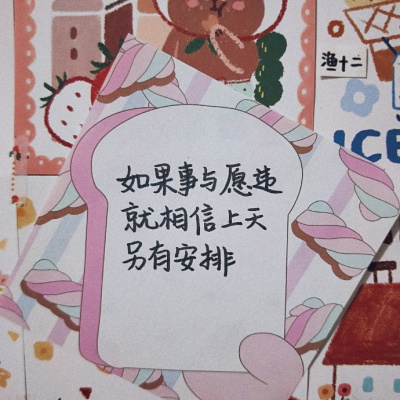 渔十二
ICE
如果事与愿违
就相信上天
另有安排